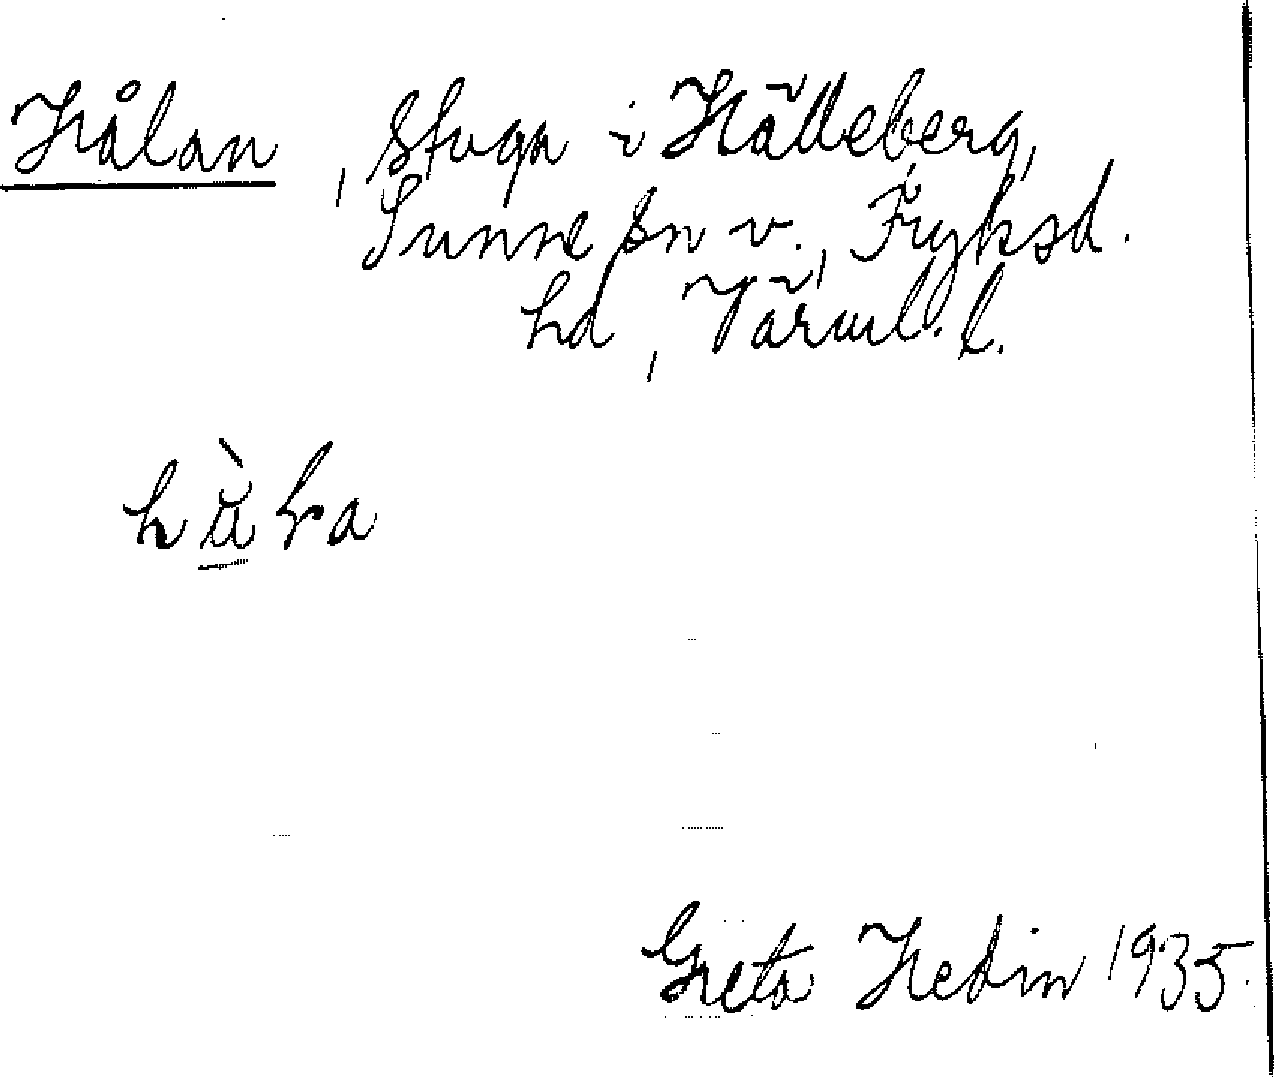 Hålan, stuga i Hälleberg,
Sunne sn v., Fryksd.
hd, Värml. l.
Greta Hedin 1935.